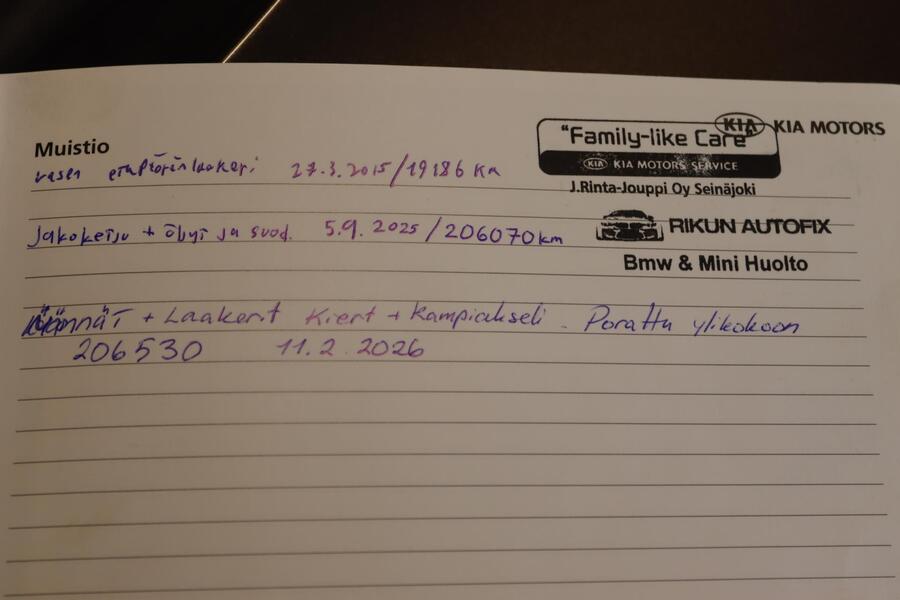 KIA KIA MOTORS
"Family-like Care"
KIA KIA MOTORS SERVICE
J.Rinta-Jouppi Oy Seinäjoki
Muistio
vasen etupyöränlaakeri 27.3.2015/19186 km
RIKUN AUTOFIX
Jakoketju + öljyt ja suod. 5.9.2025/206070km
Bmw & Mini Huolto
Männät + Laakerit Kiert + Kampiakseli. Porattu ylikokoon
206530 11.2.2026